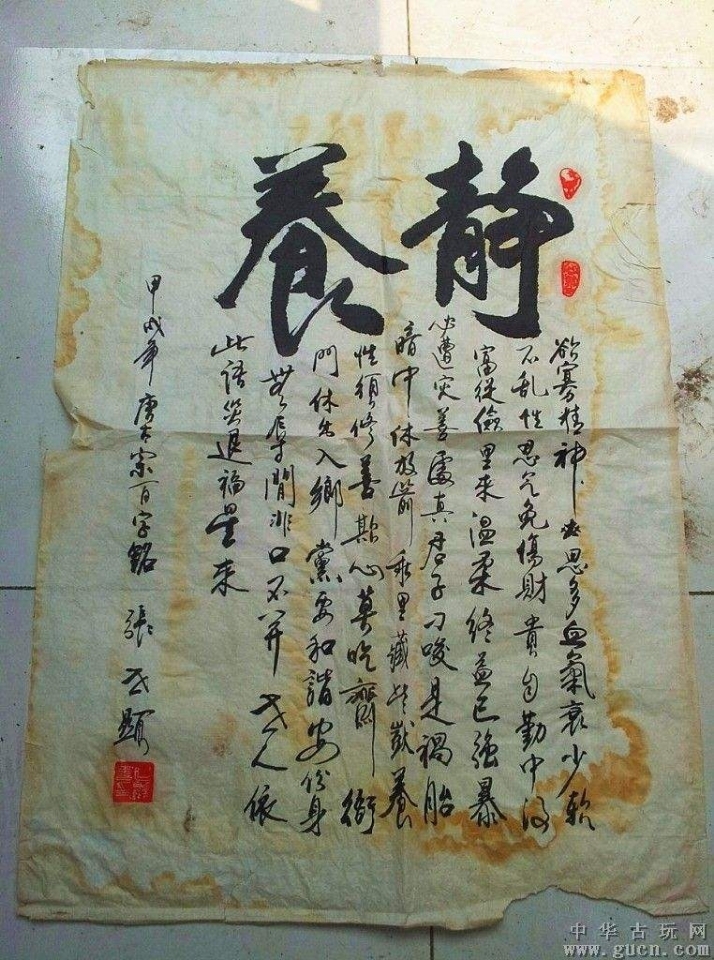 靜養
欲寡精神爽思多血氣衰少飲
不乱性忍气免傷財貴自勤中得
富從儉里来温柔終益己強暴
必遭灾善處真君子刁唆是禍胎
暗中休放箭乖里藏些獃養
性須修善欺心莫吃齋衙
門休出入鄉黨要和諧安分身
無辱閒非口不开世人依
此語災退福星来
甲戌年 唐太宗百字銘 張世顯
中华古玩网
www.gucn.com